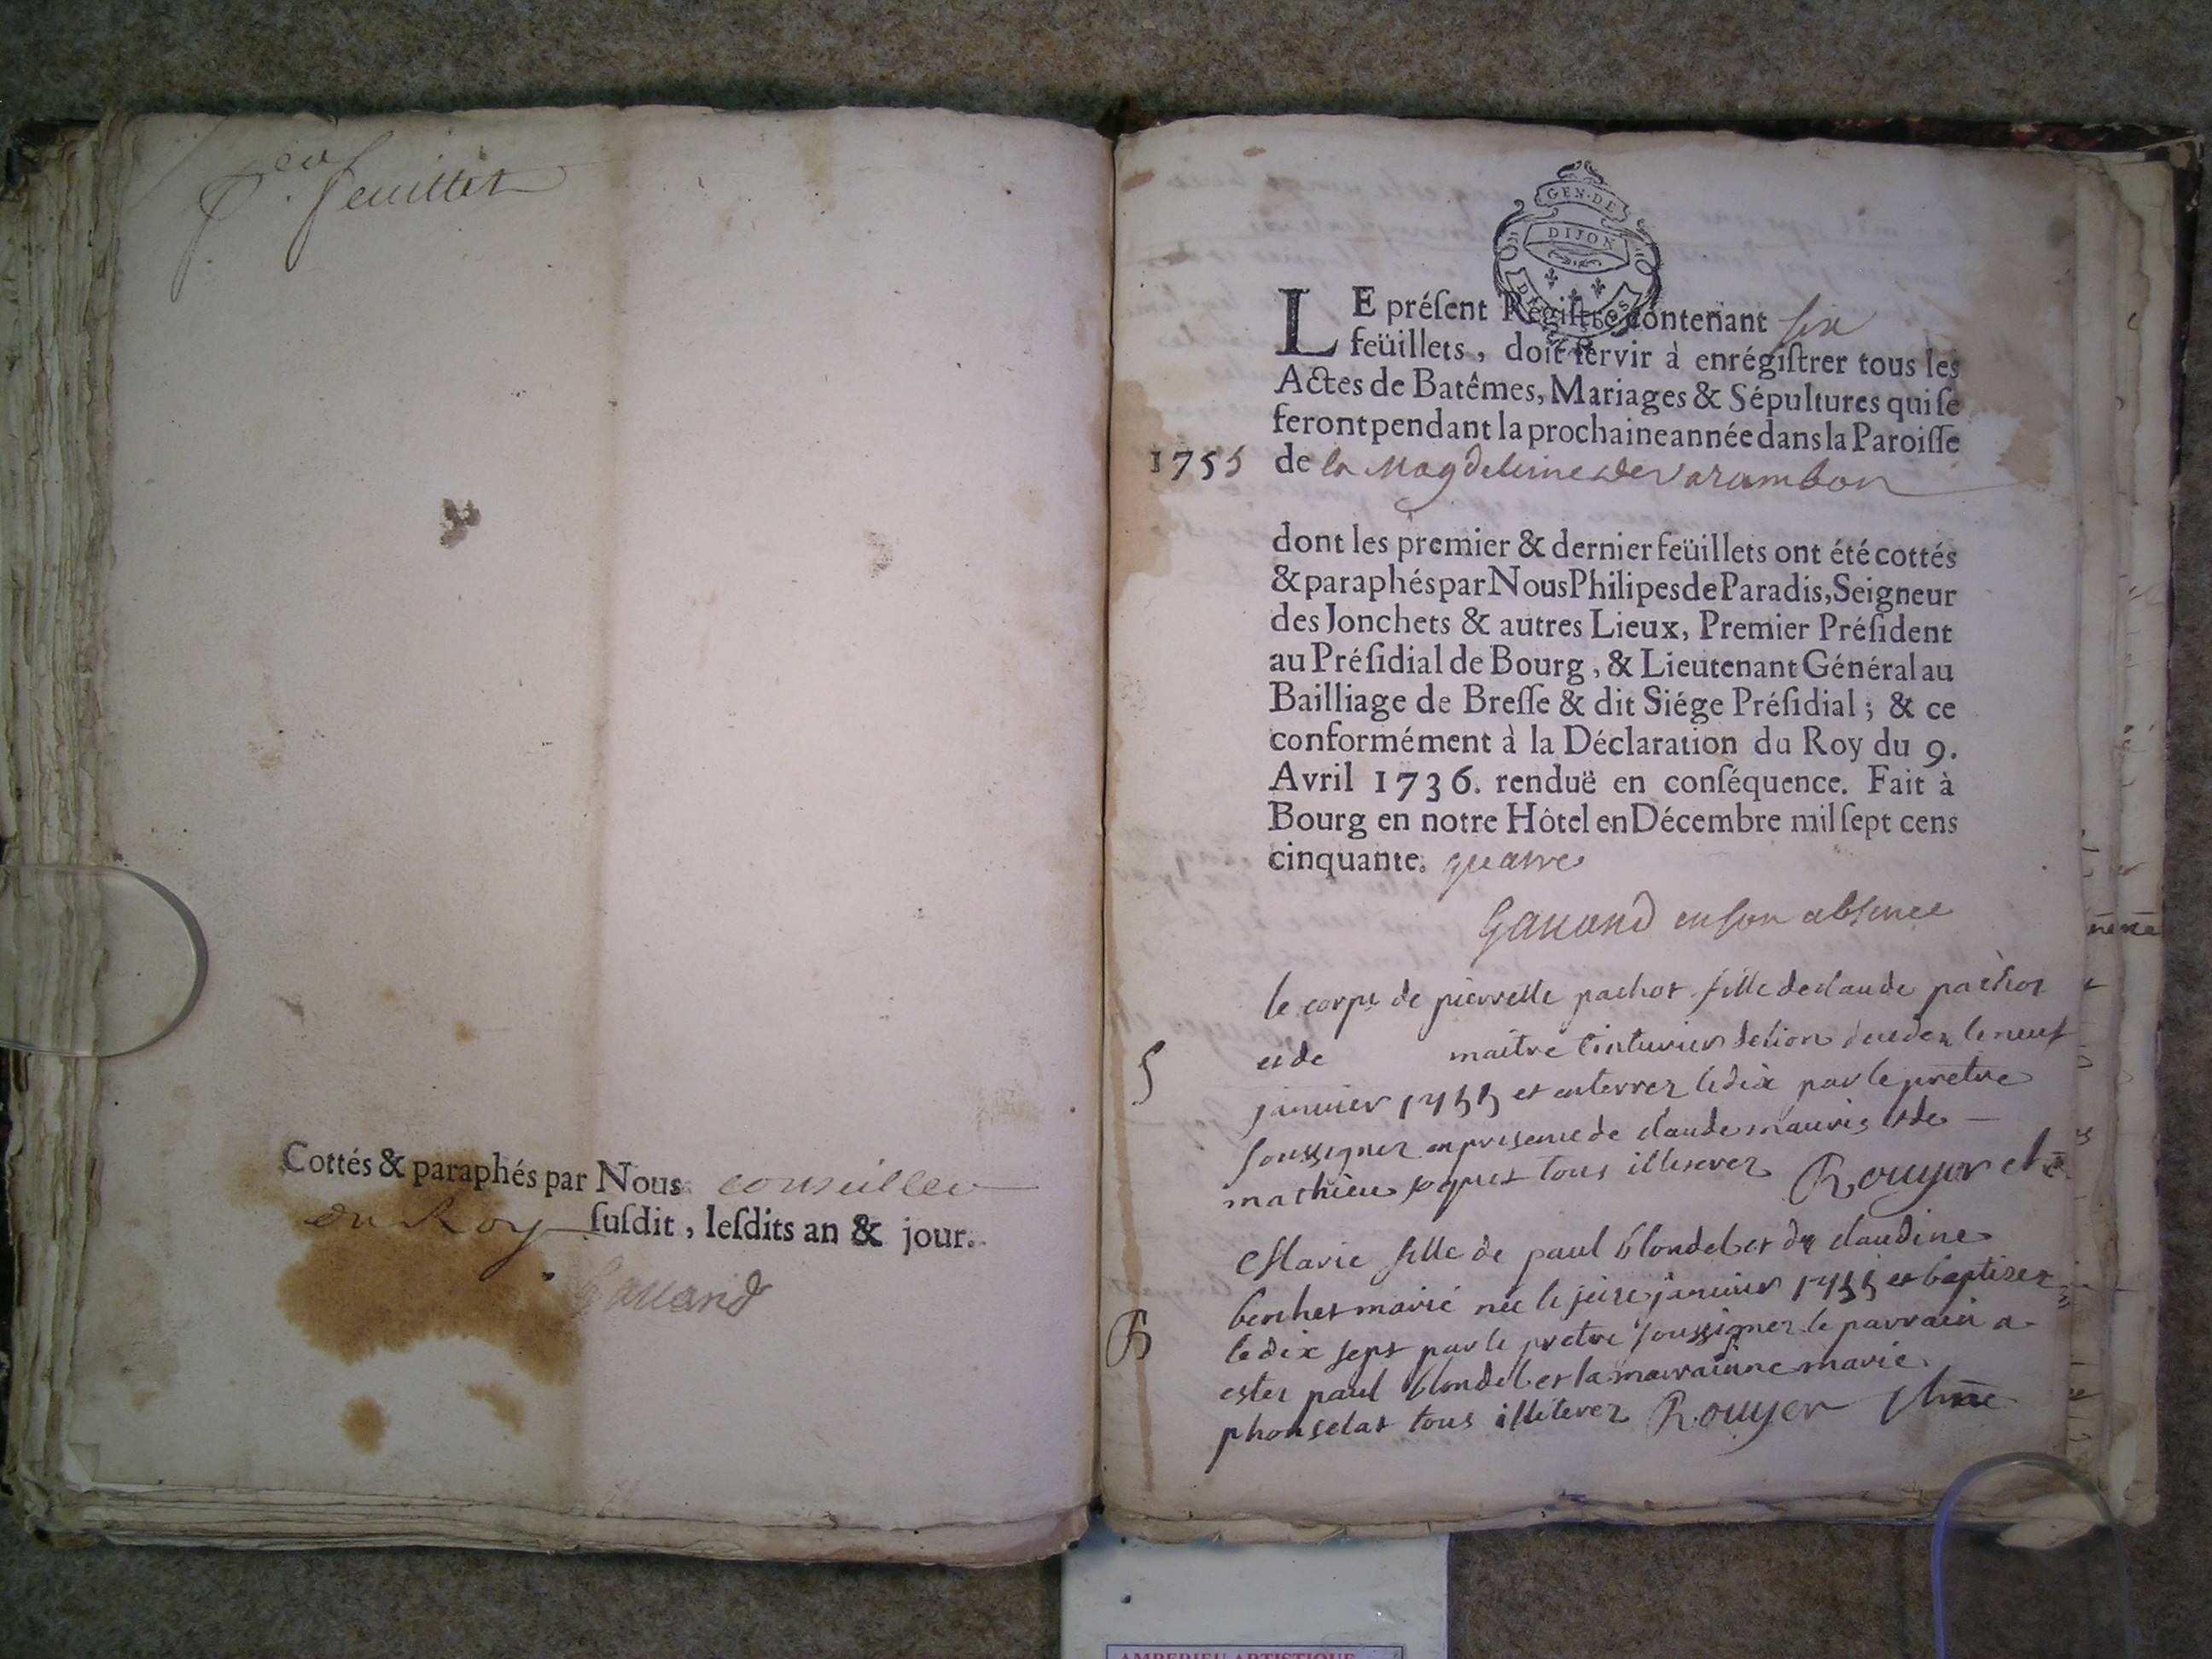 feuillet
Cottés & paraphés par Nous conseiller
du Roy susdit, lesdits an & jour.
Gauand
GEN. DE
DIJON
LE présent Régistre contenant six
feüillets, doit servir à enrégistrer tous les
Actes de Batêmes, Mariages & Sépultures qui se
feront pendant la prochaine année dans la Paroisse
1755 de la Magdeleine de Varambon
dont les premier & dernier feüillets ont été cottés
& paraphés par Nous Philipes de Paradis, Seigneur
des Jonchets & autres Lieux, Premier Président
au Présidial de Bourg, & Lieutenant Général au
Bailliage de Bresse & dit Siége Présidial; & ce
conformément à la Déclaration du Roy du 9.
Avril 1736. renduë en conséquence. Fait à
Bourg en notre Hôtel en Décembre mil sept cens
cinquante. quatre
Gauand en son absence
le corps de pierrette pachot fille de claude pachot
S et de maitre tinturier de lion decedez le neuf
janvier 1755 et enterrez le dix par le pretre
soussignez en presence de claude mauris et de
mathieu tous illiterez Rouyer
Marie fille de paul blondel et de claudine
berchet marié née le seize janvier 1755 et baptisez
B le dix sept par le pretre soussignez le parrain a
estez paul blondel et la marrainne marie
phonselat tous illiterez Rouyer
AMBERIEU ARTISTIQUE